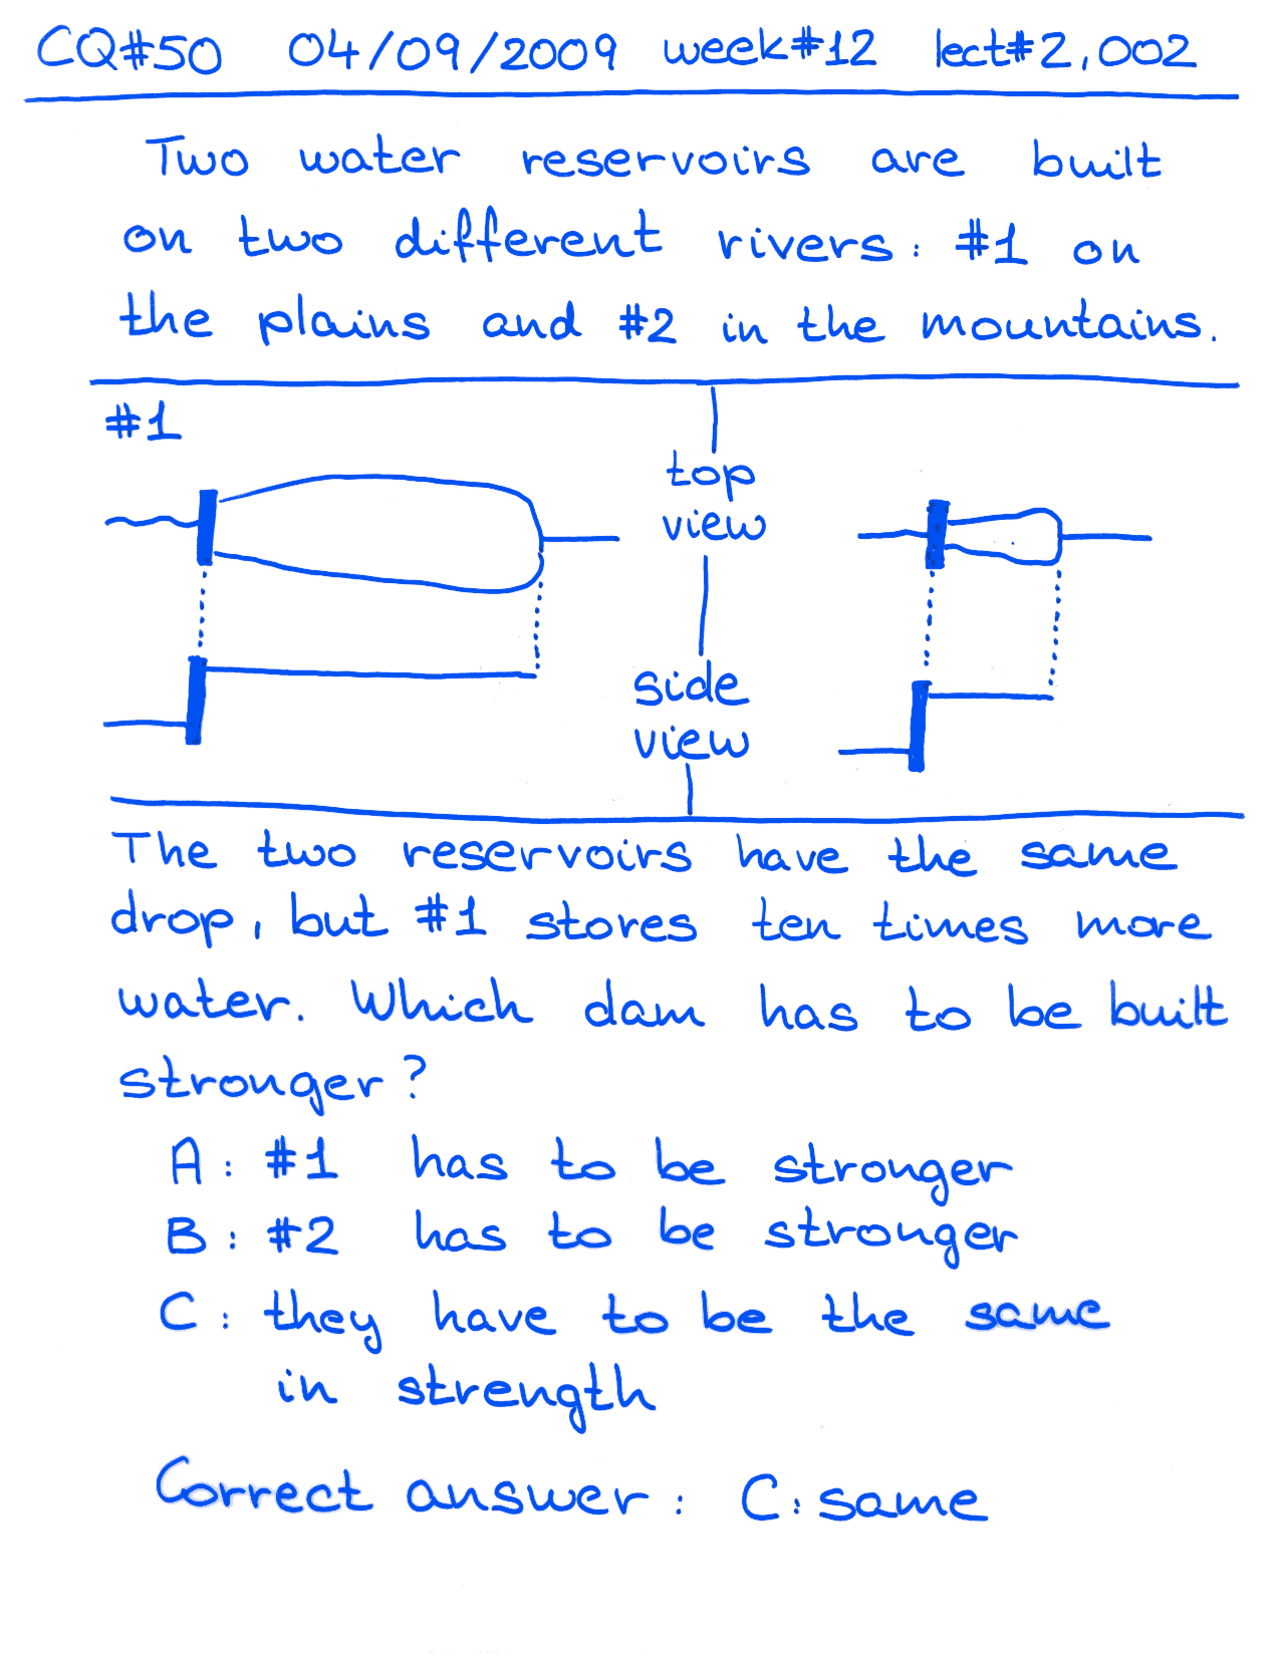 CQ#50 04/09/2009 week#12 lect#2,002
Two water reservoirs are built
on two different rivers: #1 on
the plains and #2 in the mountains.
#1
top
view
side
view
The two reservoirs have the same
drop, but #1 stores ten times more
water. Which dam has to be built
stronger?
A: #1 has to be stronger
B: #2 has to be stronger
C: they have to be the same
in strength
Correct answer: C: same